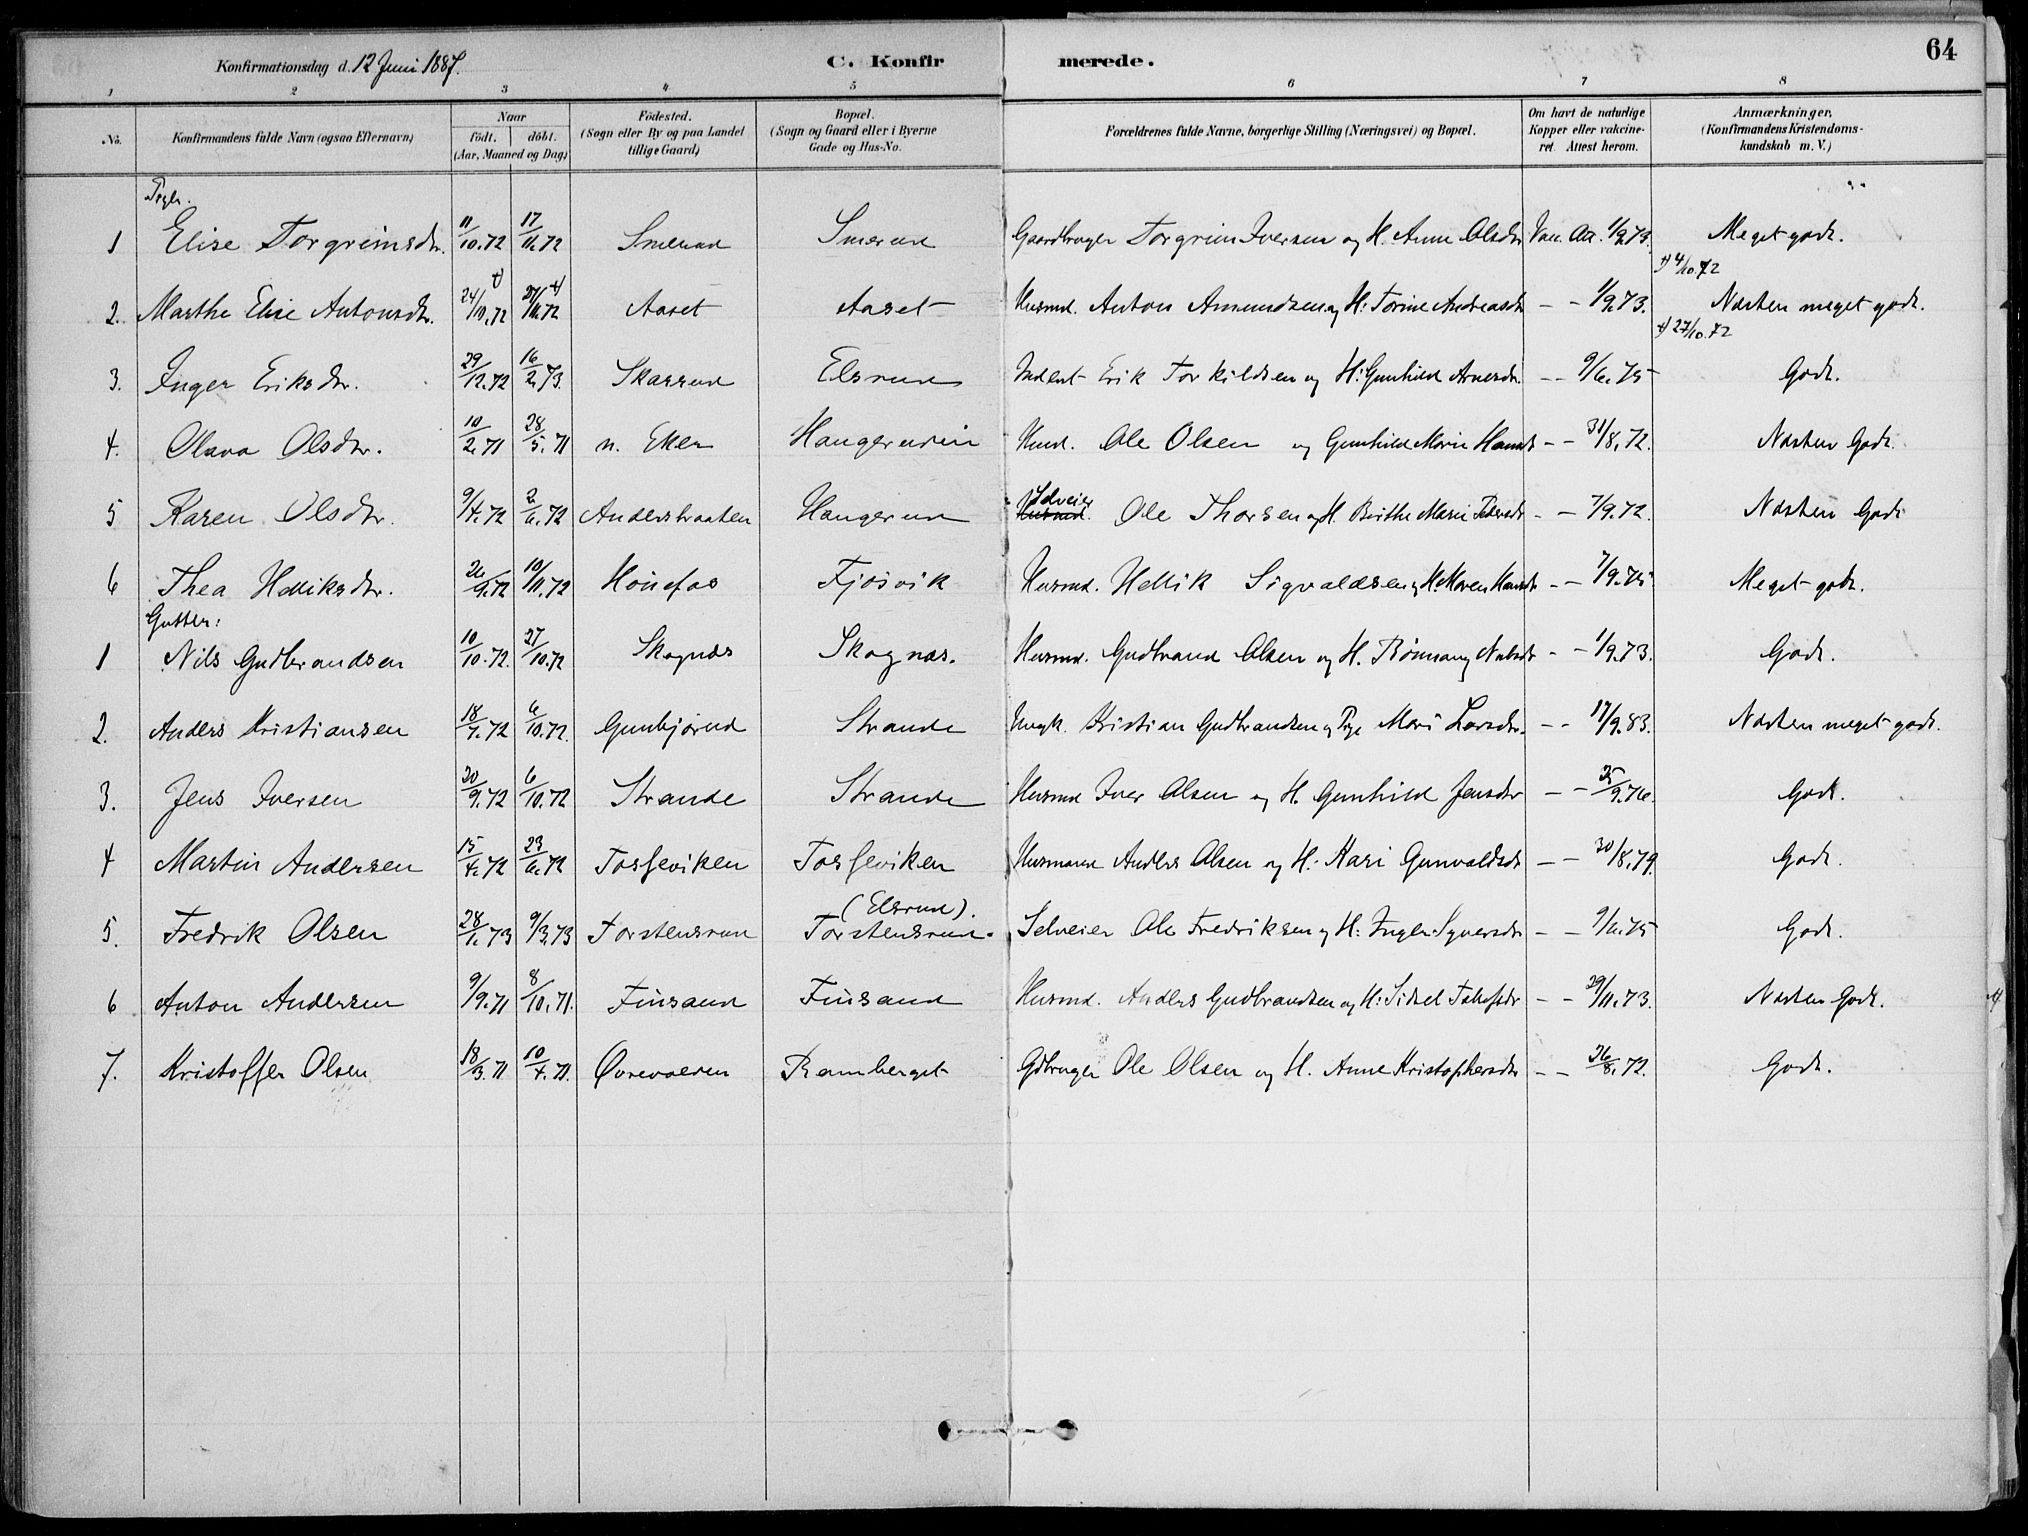 64
Konfirmationsdag d. 12 Juni 1887. C. Konfirmerede.
1 2 3 4 5 6 7 8
No. Konfirmandens fulde Navn (ogsaa Efternavn) Naar födt. döbt. (Aar, Maaned og Dag) Födested. (Sogn eller By og paa Landet tillige Gaard) Bopæl. (Sogn og Gaard eller i Byerne Gade og Hus-No. Forældrenes fulde Navne, borgerlige Stilling (Næringsvei) og Bopæl. Om havt de naturlige Kopper eller vakcineret. Attest herom. Anmærkninger, (Konfirmandens Kristendomskundskab m. V.)
1 Elise Torgrimsdr. 11/10.72 17/11.72 Smerud Smerud Gaardbruger Torgrim Iversen og H. Anne Olsdr Vac. Att. 1/9.73. Meget godt.
2. Marthe Elise Antonsdr. 24/10.72 +) 27/11.72 +) Aaset Aaset Husmd. Anton Amundsen og H. Torine Andreasdr - - 1/9.73. +) 4/10.72 Næsten meget godt. +) 27/10.72
3. Inger Eriksdr. 29/12.72 16/2.73. Skarrud Elsrud Erik Torkildsen og H: Gunhild Arnesdr. - - 9/6.75 Godt.
4. Olava Olsdr. 10/2.71 28/5.71 n. Eker Haugerudei Husmd. Ole Olsen og Gunhild Marie Hansdr - - 31/8.72. Næsten Godt.
5 Karen Olsdr. 9/4.72 2/6.72 Andersbraaten Haugerud Husmd. Selveier Ole Thorsen og H. Birthe Marie Pedersdr - - 7/9.72. Næsten Godt
6 Thea Helliksdr. 26/9.72 10/11.72 Hönefos Fjösvik Husmd. Hellik Sigvaldsen og H. Maren Hansdr - - 7/9.75 Meget godt.
Gutter:
1 Nils Gudbrandsen 10/10.72. 27/10.72 Skagnæs Skagnæs. Husmd. Gudbrand Olsen og H. Rönnaug Nilsdr - - 1/9.73. Godt.
2. Anders Kristiansen 18/7.72 6/10.72. Gunbjörud Strande Ungk. Kristian Gudbrandsen og Pige Mari Larsdr. - - 17/9.83. Næsten meget godt.
3. Jens Iversen 20/9.72 6/10.72 Strande Strande Husmd Iver Olsen og H. Gunhild Jensdr - - 25/9.76. Godt.
4 Martin Andersen 15/4.72 23/6.72 Tosseviken Tosseviken Husmand Anders Olsen og H. Kari Gunvaldsdr - - 30/8.79. Godt.
5. Fredrik Olsen 28/1.73 9/3.73 Torstensrud (Elsrud). Torstensrud. Selveier Ole Fredriksen og H: Inger Syversdr - - 9/6.75 Godt.
6 Anton Andersen 9/9.71 8/10.71. Finsand Finsand Husmd. Anders Gudbrandsen og H: Sidsel - - 29/11.73. Næsten Godt.
7. Kristoffer Olsen 18/3.71 10/4.71. Övrevolden Ramberget Gdbruger Ole Olsen og H. Anne Kristophersdr - - 26/8.72. Godt.